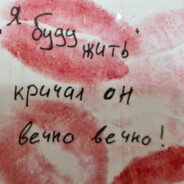 Я буду
жить
кричал он
вечно вечно!